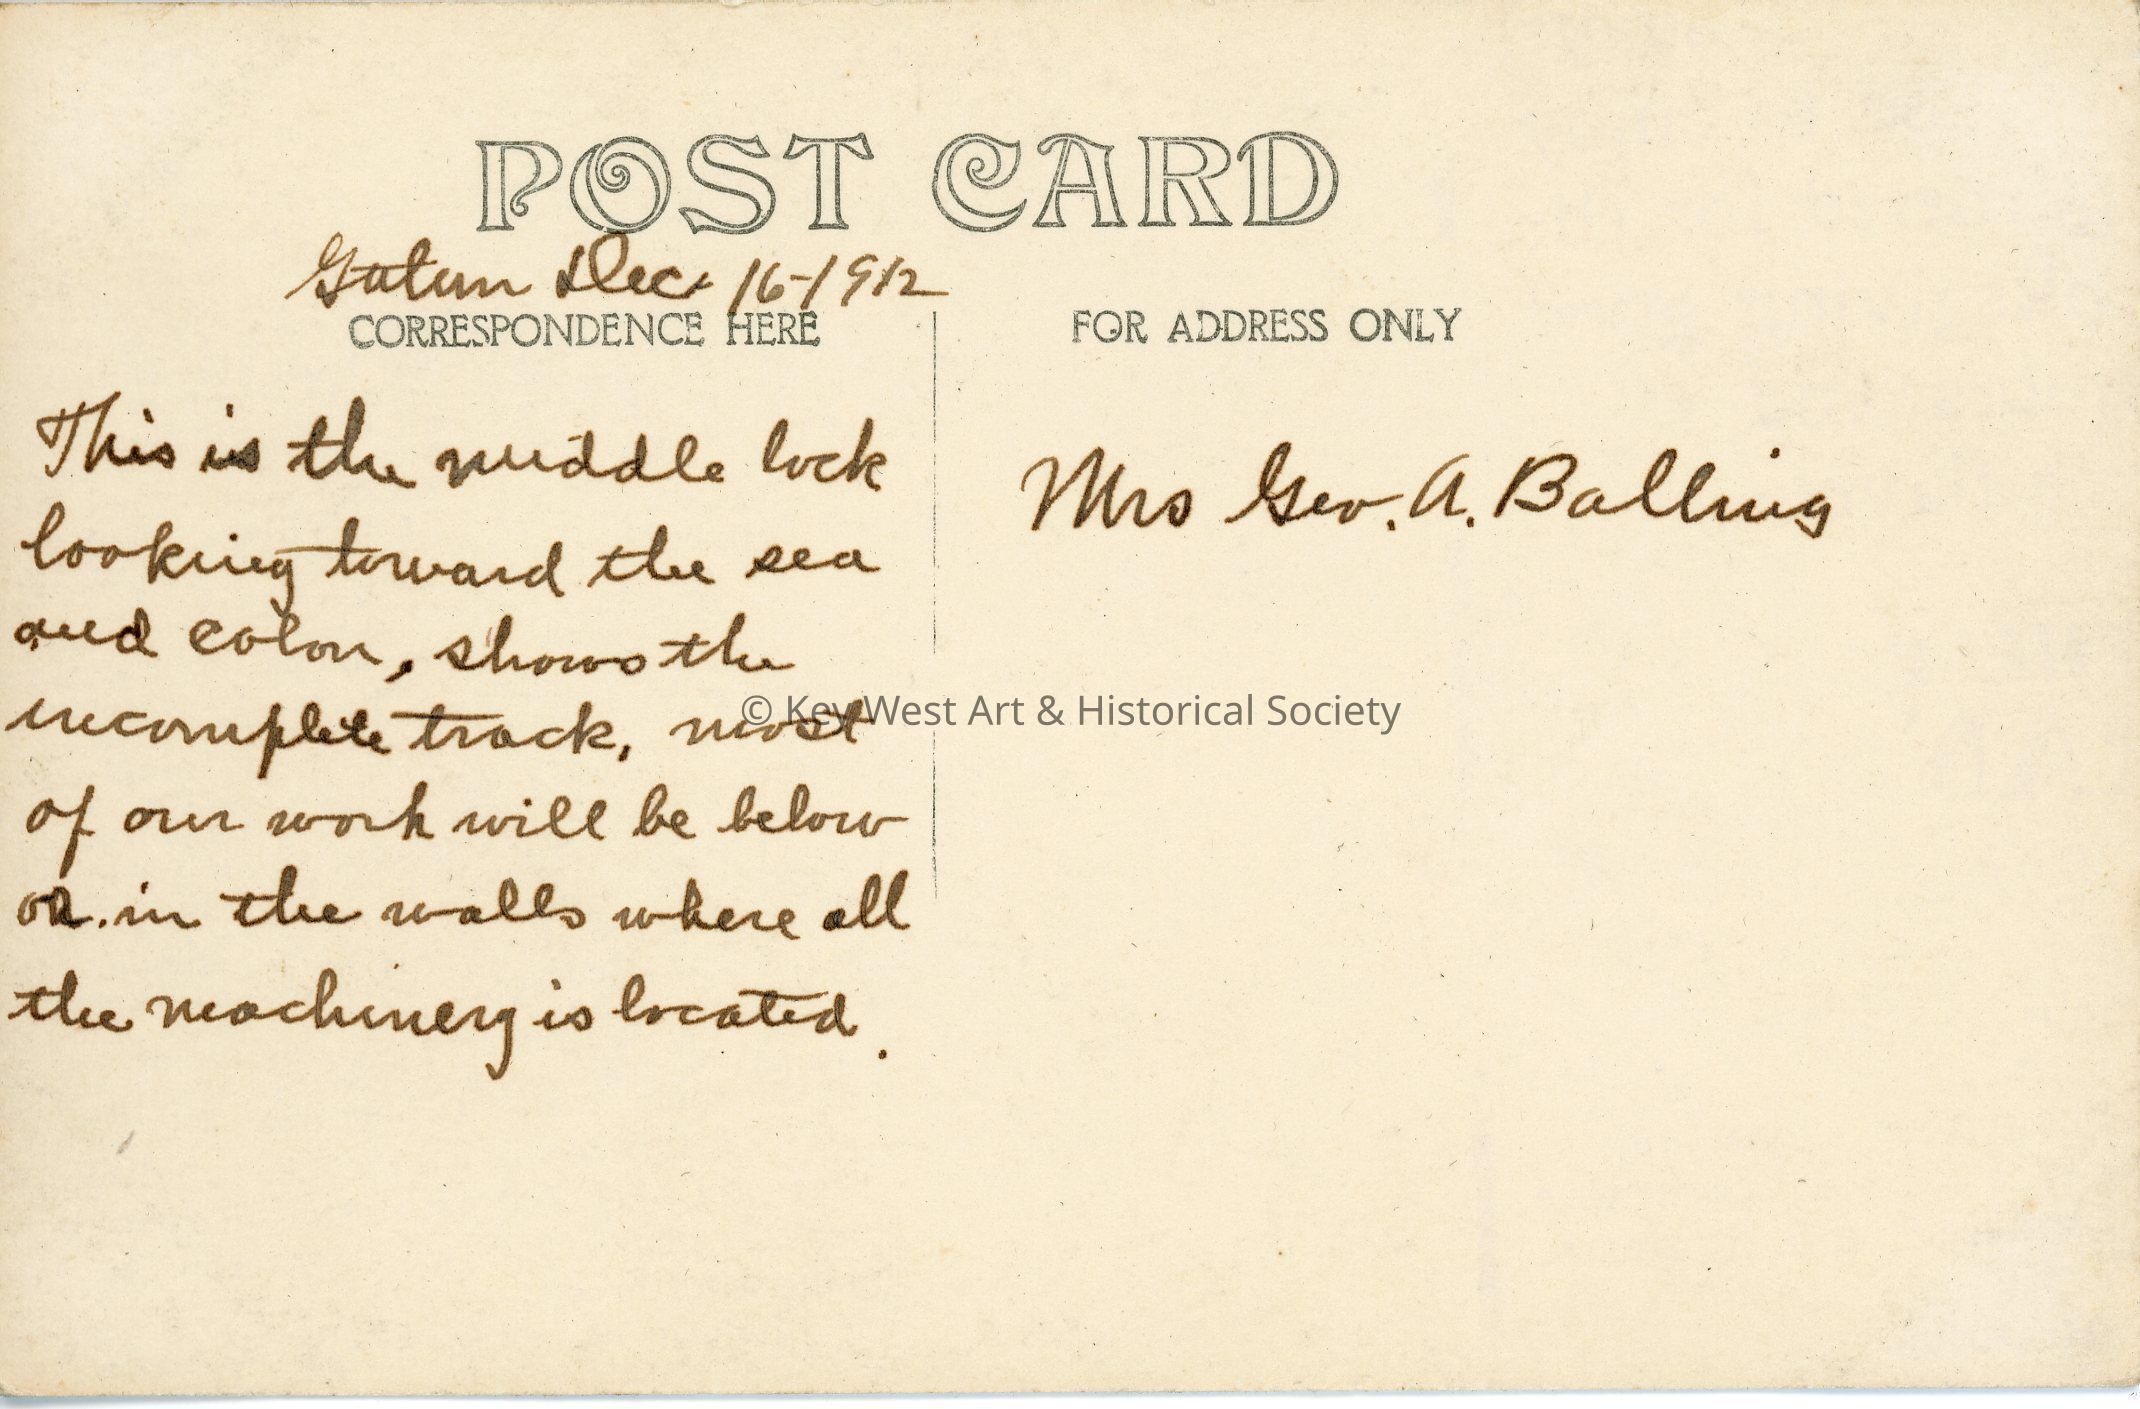 POST CARD
Gatun Dec. 16-1912
CORRESPONDENCE HERE
FOR ADDRESS ONLY
This is the middle lock
looking toward the sea
and colon, shows the
incomplete track, most
of our work will be below
or in the walls where all
the machinery is located.
Mrs Geo. A. Balling
© Key West Art & Historical Society